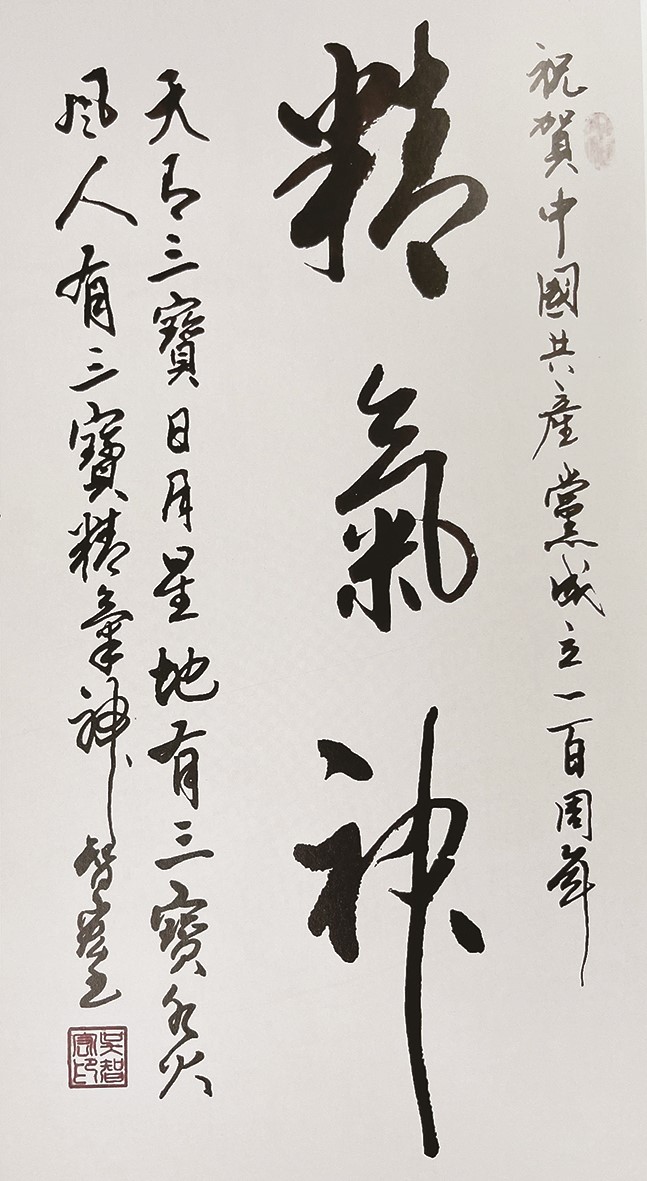 祝賀中國共産黨成立一百周年
精氣神
天有三寶日月星地有三寶水火
風人有三寶精氣神 智
吳智印